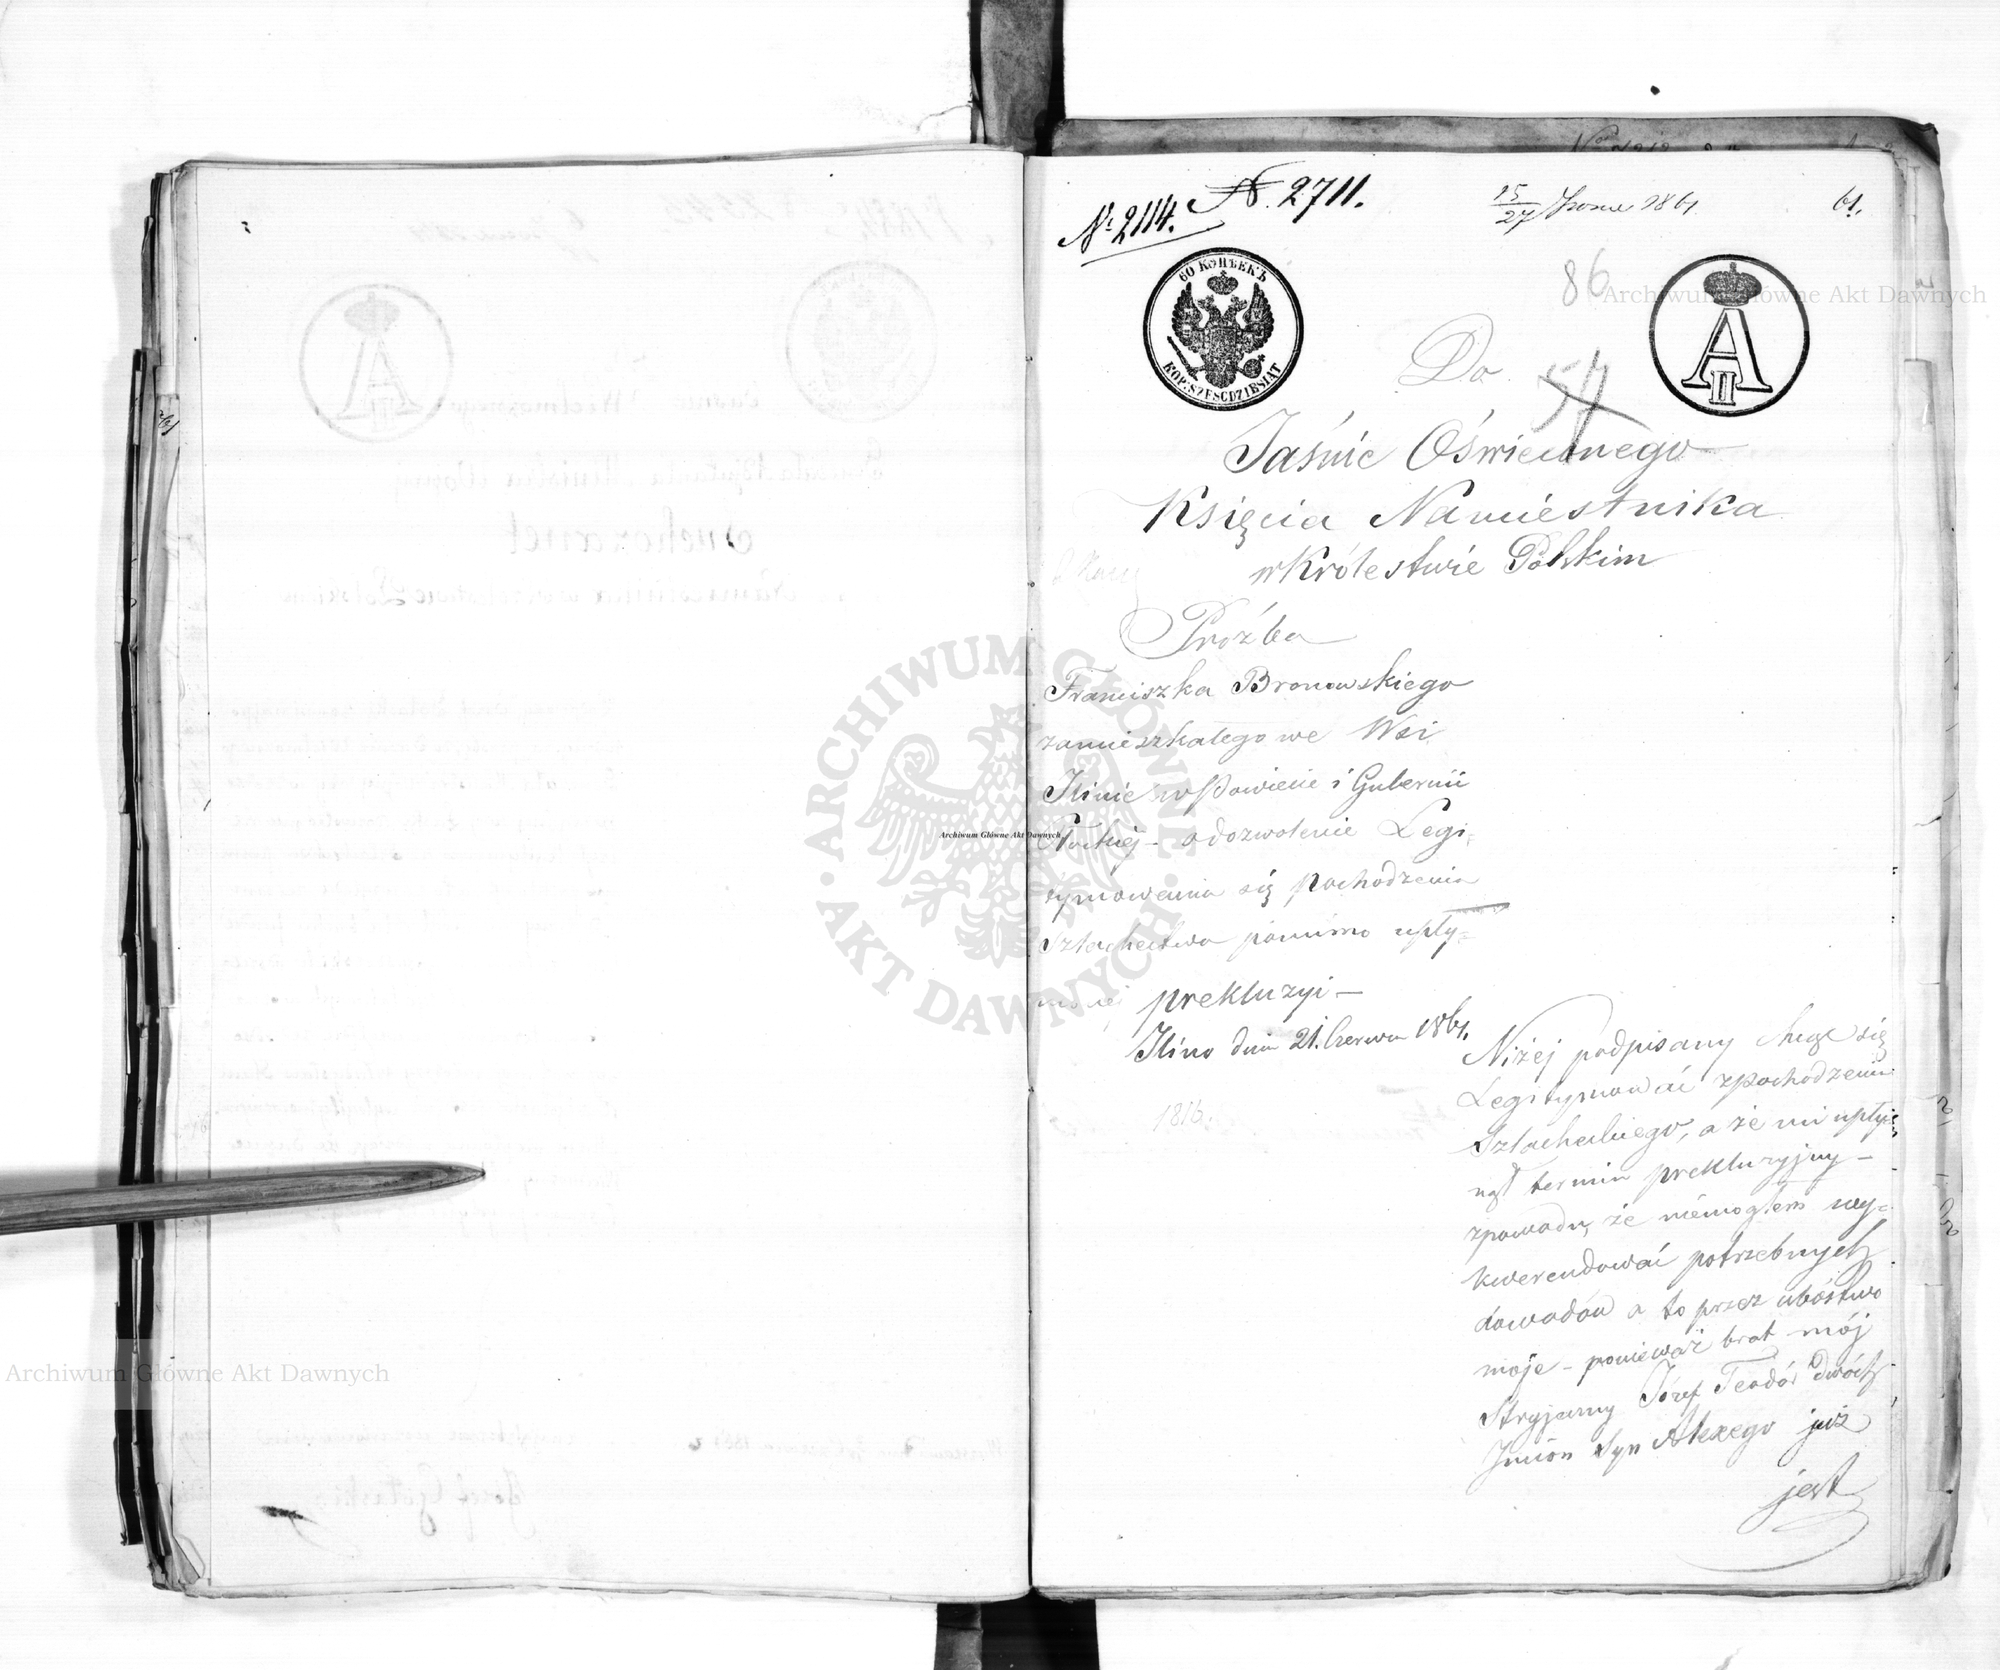 № 2114.
№ 2711.
15/27 Czerwca 1861.
61.
86
60 КОПѢЕКЪ
KOP: SZEŚĆDZIESIĄT
A II
Do
57
Jaśnie Oświeconego
Księcia Namiestnika
w Królestwie Polskim
Proźba
Franciszka Bronowskiego
zamieszkałego we Wsi
Ilinie w Powiecie i Gubernii
Płockiej – o dozwolenie Legi-
tymowania się pochodzenia
Szlachectwa pomimo upły-
nionej prekluzyi –
Ilino dnia 21. Czerwca 1861.
1816.
Niżej podpisany chcąc się
Legitymować z pochodzenia
Szlacheckiego, a że mi upły-
nął termin prekluzyjny –
z powodu, że niemogłem wy-
kwerendować potrzebnych
dowodów a to przez ubóstwo
moje – ponieważ brat mój
Stryjeczny Józef Teodór dwóch
Imion Syn Alexego już
jest
Archiwum Główne Akt Dawnych
Archiwum Główne Akt Dawnych
Archiwum Główne Akt Dawnych
ARCHIWUM GŁÓWNE · AKT DAWNYCH ·